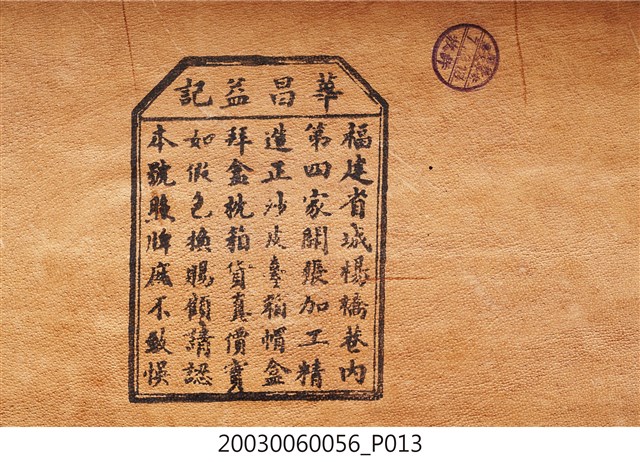 華昌益記
福建省城楊橋巷内
第四家開張加工精
造正沙皮臺箱帽盒
拜盒枕箱貨真價實
如假包換賜顧請認
本號照牌庶不致悞
20030060056_P013